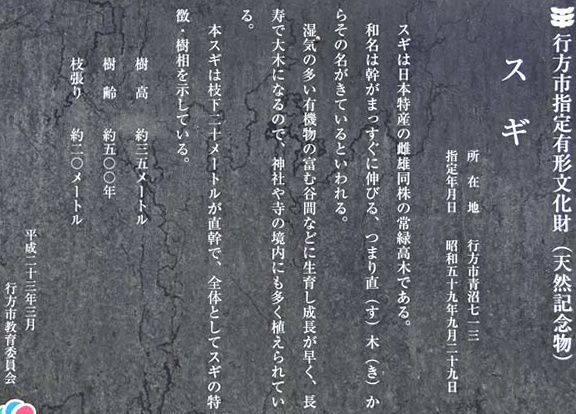 行方市指定有形文化財（天然記念物）
スギ
所在地　行方市青沼七一三
指定年月日　昭和五十九年九月二十九日
スギは日本特産の雌雄同株の常緑高木である。
和名は幹がまっすぐに伸びる、つまり直（す）木（き）か
らその名がきているといわれる。
湿気の多い有機物の富む谷間などに生育し成長が早く、長
寿で大木になるので、神社や寺の境内にも多く植えられてい
る。
本スギは枝下二十メートルが直幹で、全体としてスギの特
徴・樹相を示している。
樹高　約三五メートル
樹齢　約五〇〇年
枝張り　約二〇メートル
平成二十三年三月
行方市教育委員会